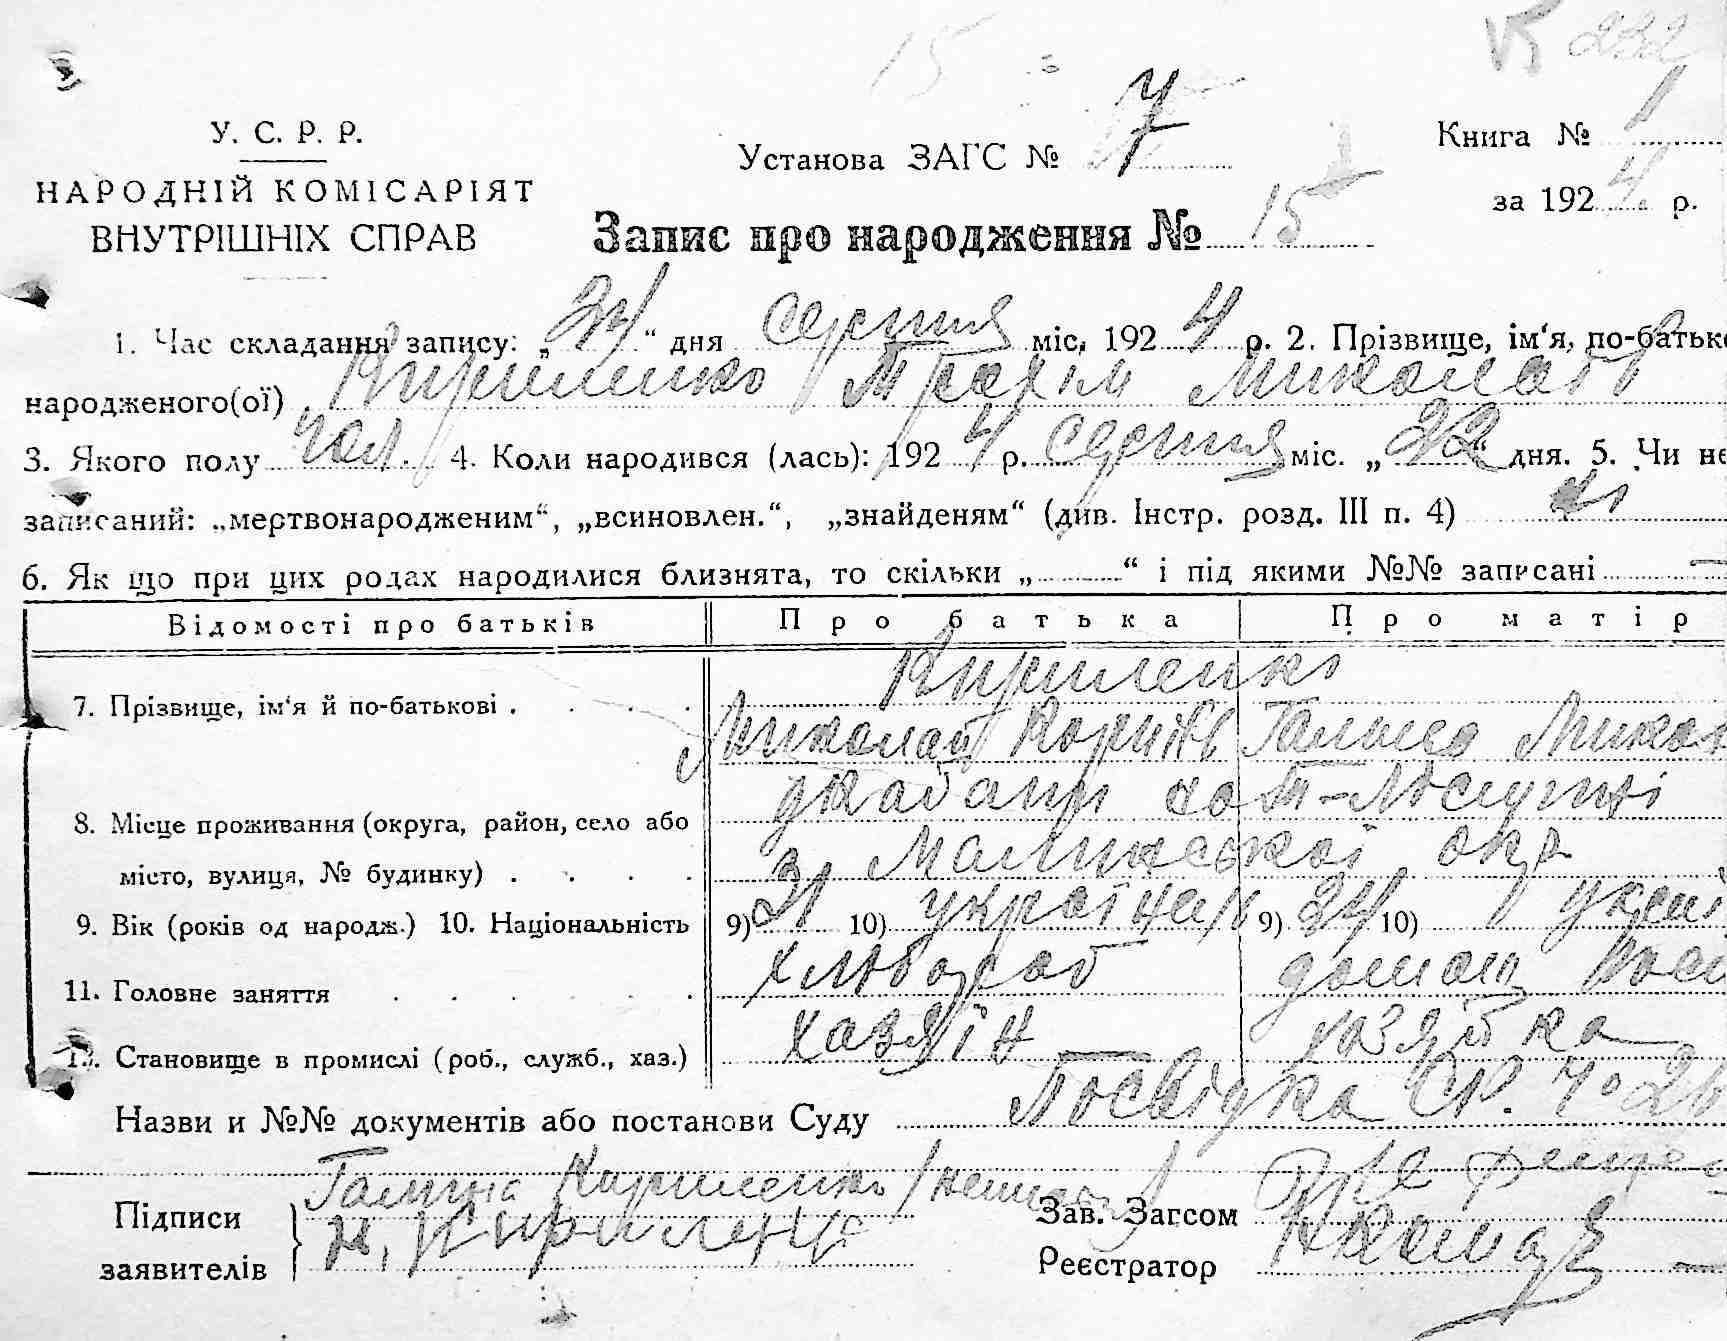 232
15
У. С. Р. Р.
НАРОДНІЙ КОМІСАРІЯТ
ВНУТРІШНІХ СПРАВ
Установа ЗАГС № 7
Книга № 1
за 1924 р.
Запис про народження № 15
1. Час складання запису: „24“ дня серпня міс. 1924 р. 2. Прізвище, ім‘я, по-батьк
народженого(ої) Кириленко Трахім Миколаєв
3. Якого полу чол. 4. Коли народився (лась): 1924 р. серпня міс. „22“ дня. 5. Чи не
записаний: „мертвонародженим“, „всиновлен.“, „знайденям“ (див. Інстр. розд. III п. 4) ні
6. Як що при цих родах народилися близнята, то скільки „ “ і під якими №№ записані —
Відомості про батьків Про батька Про матір
Кириленко
7. Прізвище, ім‘я й по-батькові
Миколай Корнів Галина Микол
8. Місце проживання (округа, район, село або
місто, вулиця, № будинку)
Малинської окр
9. Вік (років од народж.) 10. Національність 9) 31 10) українец 9) 24 10) украї
11. Головне заняття хлібороб домаш госп
12. Становище в промислі (роб., служб., хаз.) хазяїн хазяйка
Назви и №№ документів або постанови Суду Посвідка СР. № 26
Підписи
заявителів
Галина Кириленко
М. Кириленко
Зав. Загсом
Реєстратор